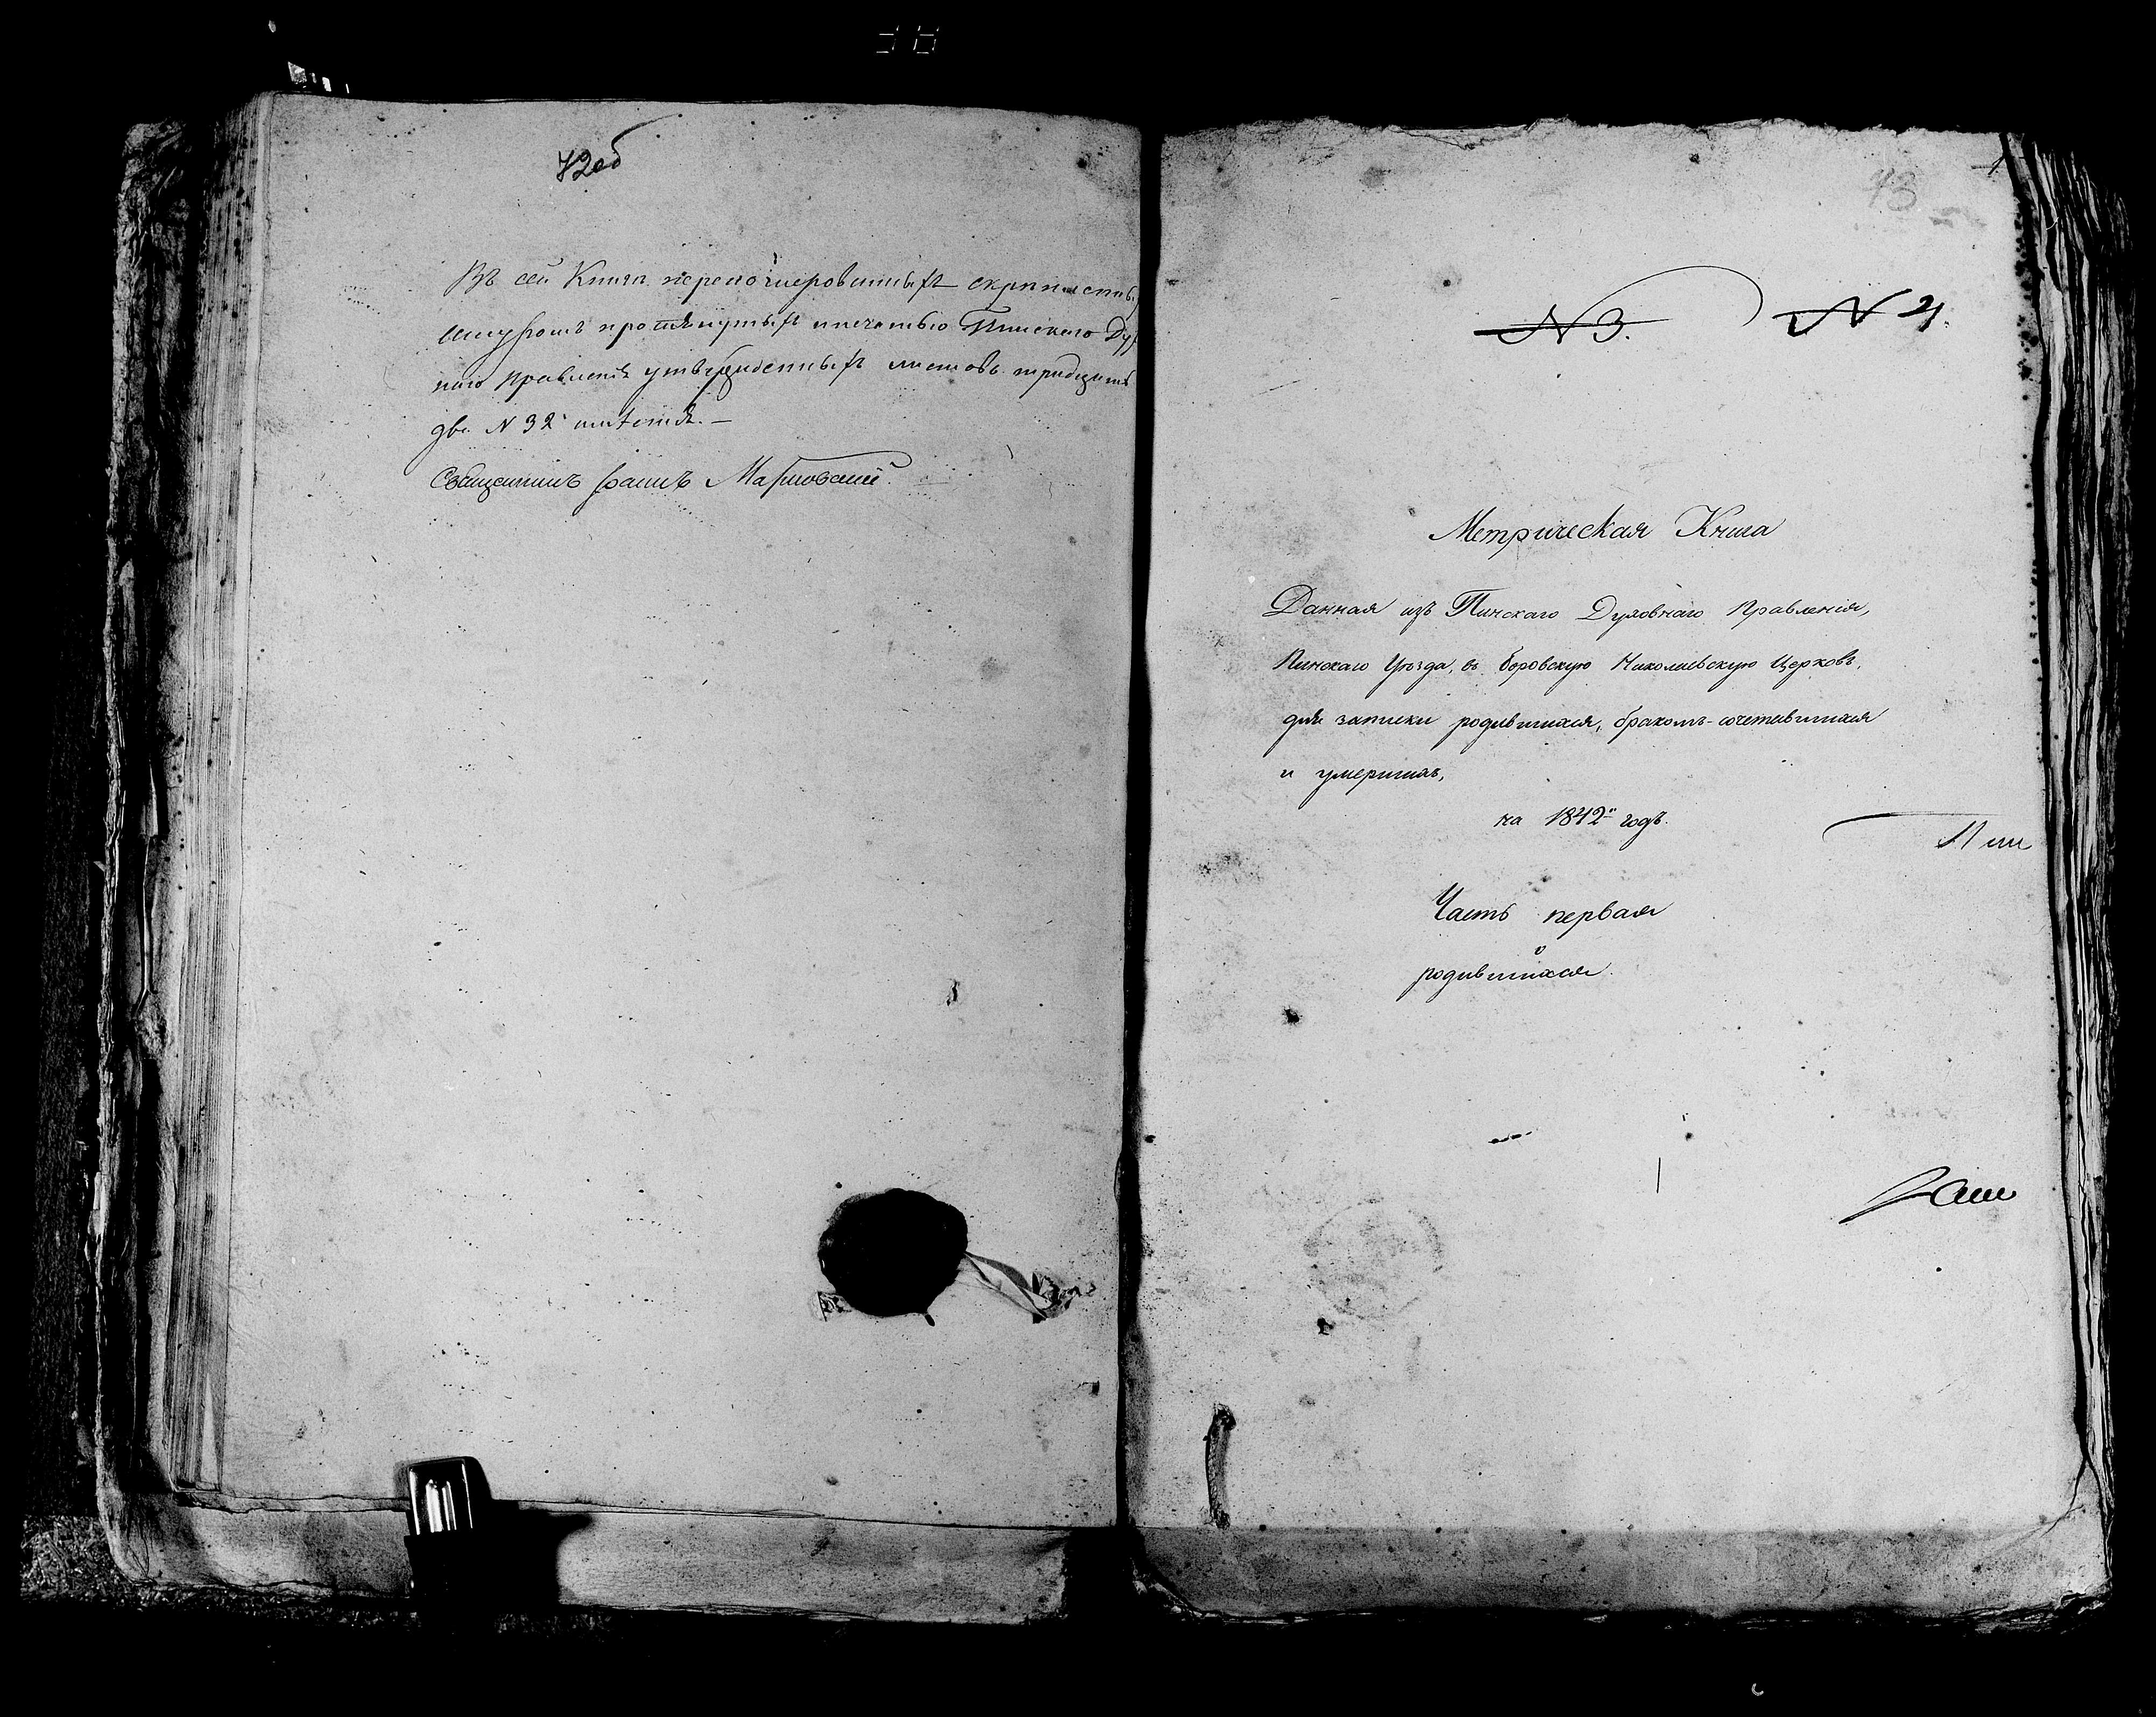 72об
Въ сей Книгѣ перенумерованныхъ скрепленныхъ
шнуромъ протянутыхъ и печатью Пинского Дух
наго Правленія утвержденныхъ листовъ тридцать
два № 32
Священникъ Маршовскій.
73
№ 3. № 4.
Метрическая Книга
Данная изъ Пинскаго Духовнаго Правленія,
Пинскаго Уѣзда, въ Боровскую Николаевскую Церковь,
для записки родившихся, бракомъ-сочетавшихся
и умершихъ,
на 1842й годъ.
Часть первая
о
родившихся.